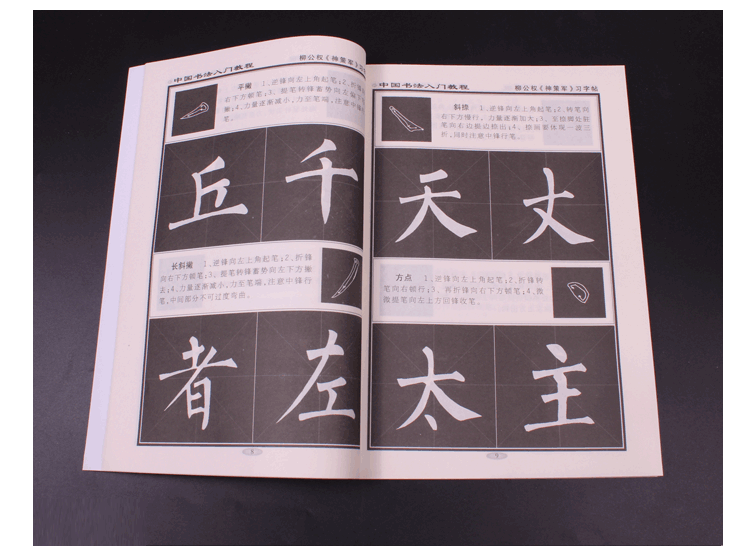 中国书法入门教程
柳公权《神策军》习
平撇 1、逆锋向左上角起笔;2、折锋
向右下方顿笔;3、提笔转锋蓄势向左偏下
撇;4、力量逐渐减小,力至笔端,注意中锋行
笔。
丘 千
长斜撇 1、逆锋向左上角起笔;2、折锋
向右下方顿笔;3、提笔转锋蓄势向左下方撇
去;4、力量逐渐减小,力至笔端,注意中锋行
笔,中间部分不可过度弯曲。
者 左
中国书法入门教程
柳公权《神策军》习字帖
斜捺 1、逆锋向左上角起笔;2、转笔向
右下方慢行,力量逐渐加大;3、至捺脚处铺
笔向右边提边捺出;4、捺画要体现一波三
折,同时注意中锋行笔。
天 丈
方点 1、逆锋向左上角起笔;2、折锋转
笔向右顿行;3、再折锋向右下方顿笔;4、微
微提笔向左上方回锋收笔。
太 主